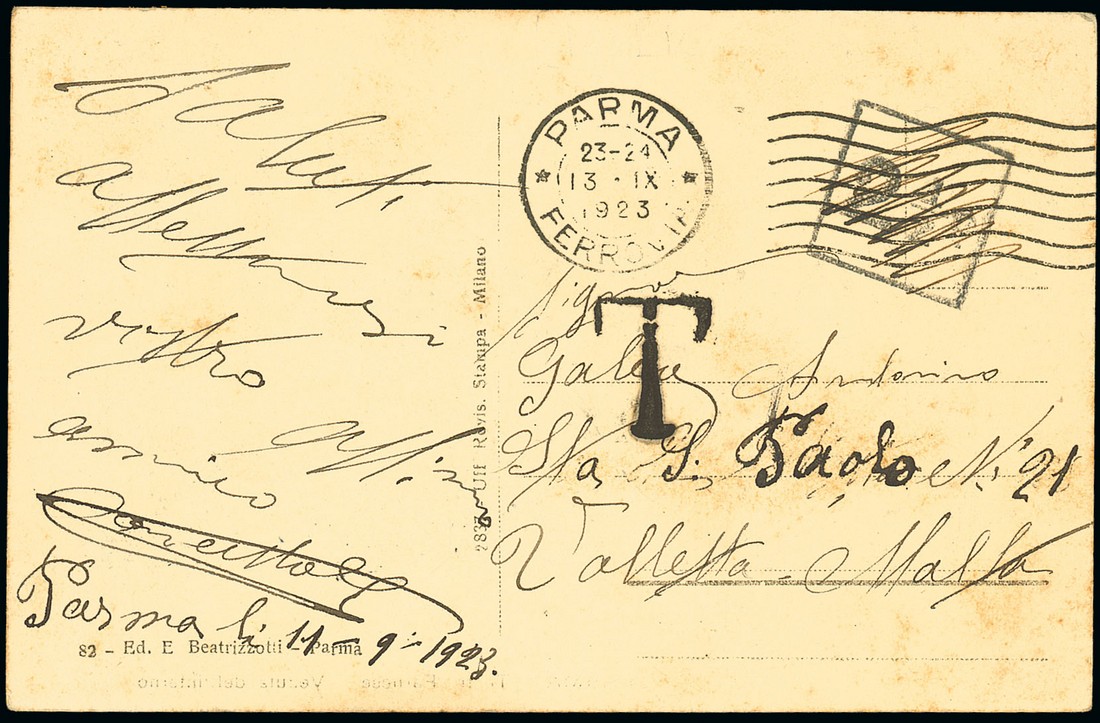 Saluti
affettuosi
vostro
amico aff.mo
Parma li 11-9-1923.
82 - Ed. E Beatrizzotti - Parma
2837 - Uff Revis. Stampa - Milano
PARMA
23-24
13 · IX
1923
FERROVIA
T
Signor
Galea
Sta S. Paolo N. 21
Valletta - Malta
Farnese Veduta dell'interno